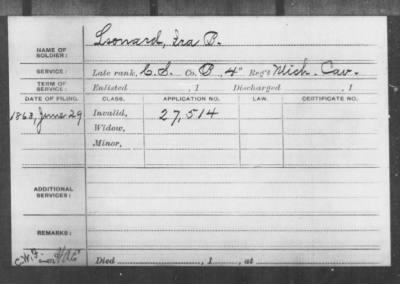 NAME OF SOLDIER: Leonard, Ira B.
SERVICE: Late rank, C.S. Co. B, 4" Reg't Mich. Cav.
TERM OF SERVICE: Enlisted , 1 Discharged , 1
DATE OF FILING. CLASS. APPLICATION NO. LAW. CERTIFICATE NO.
1863, June 29 Invalid, 27,514
Widow,
Minor,
ADDITIONAL SERVICES:
REMARKS:
C.W.F.
Died , 1 , at